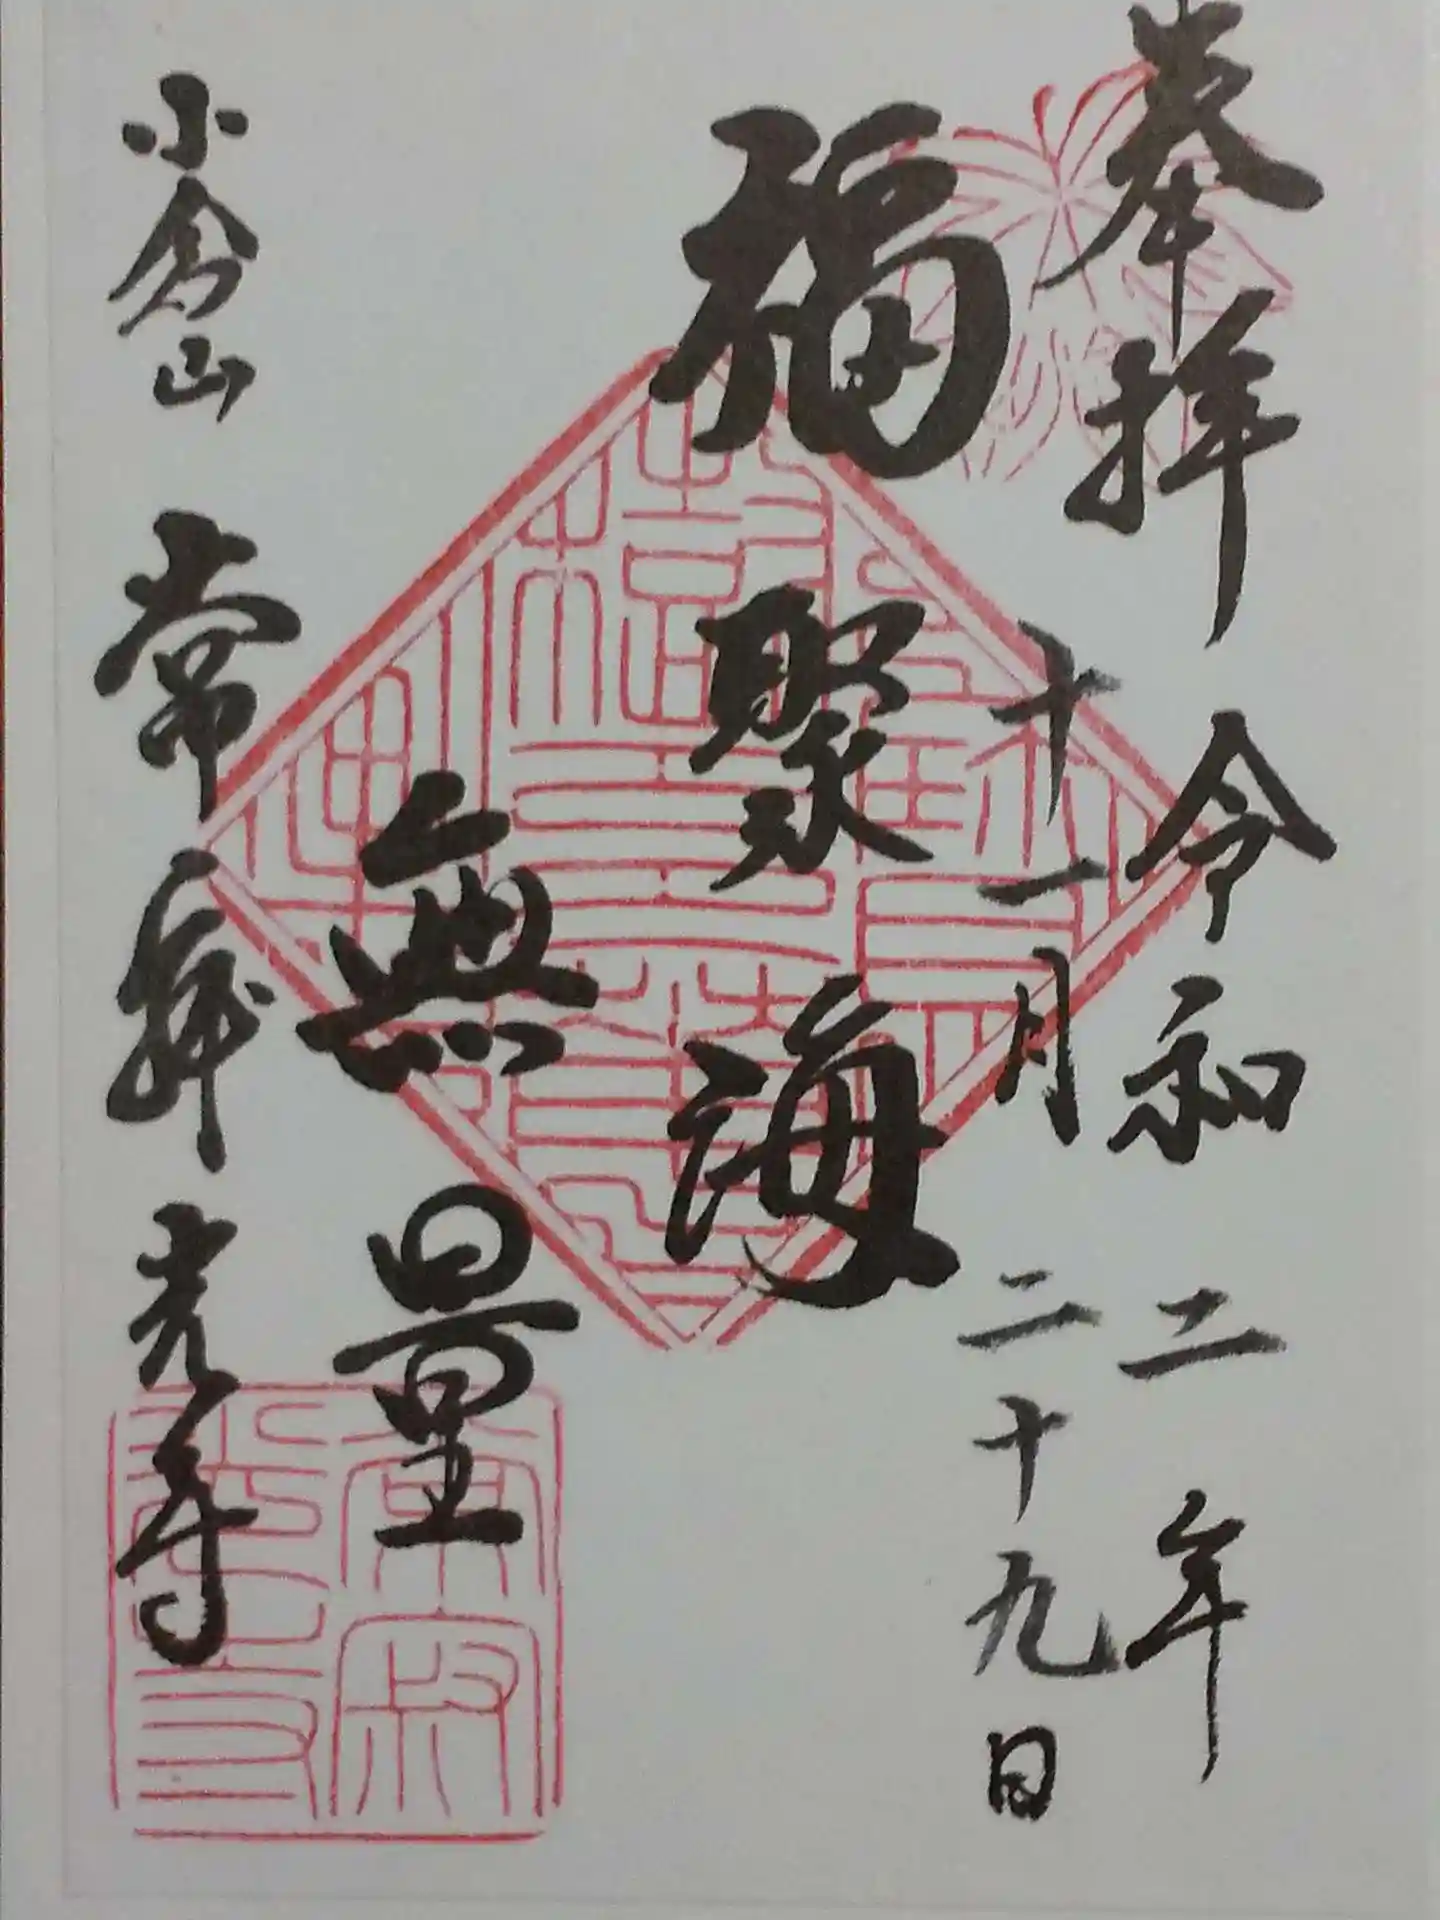 奉拝
令和二年
十一月二十九日
福聚海
無量
小倉山
常寂光寺